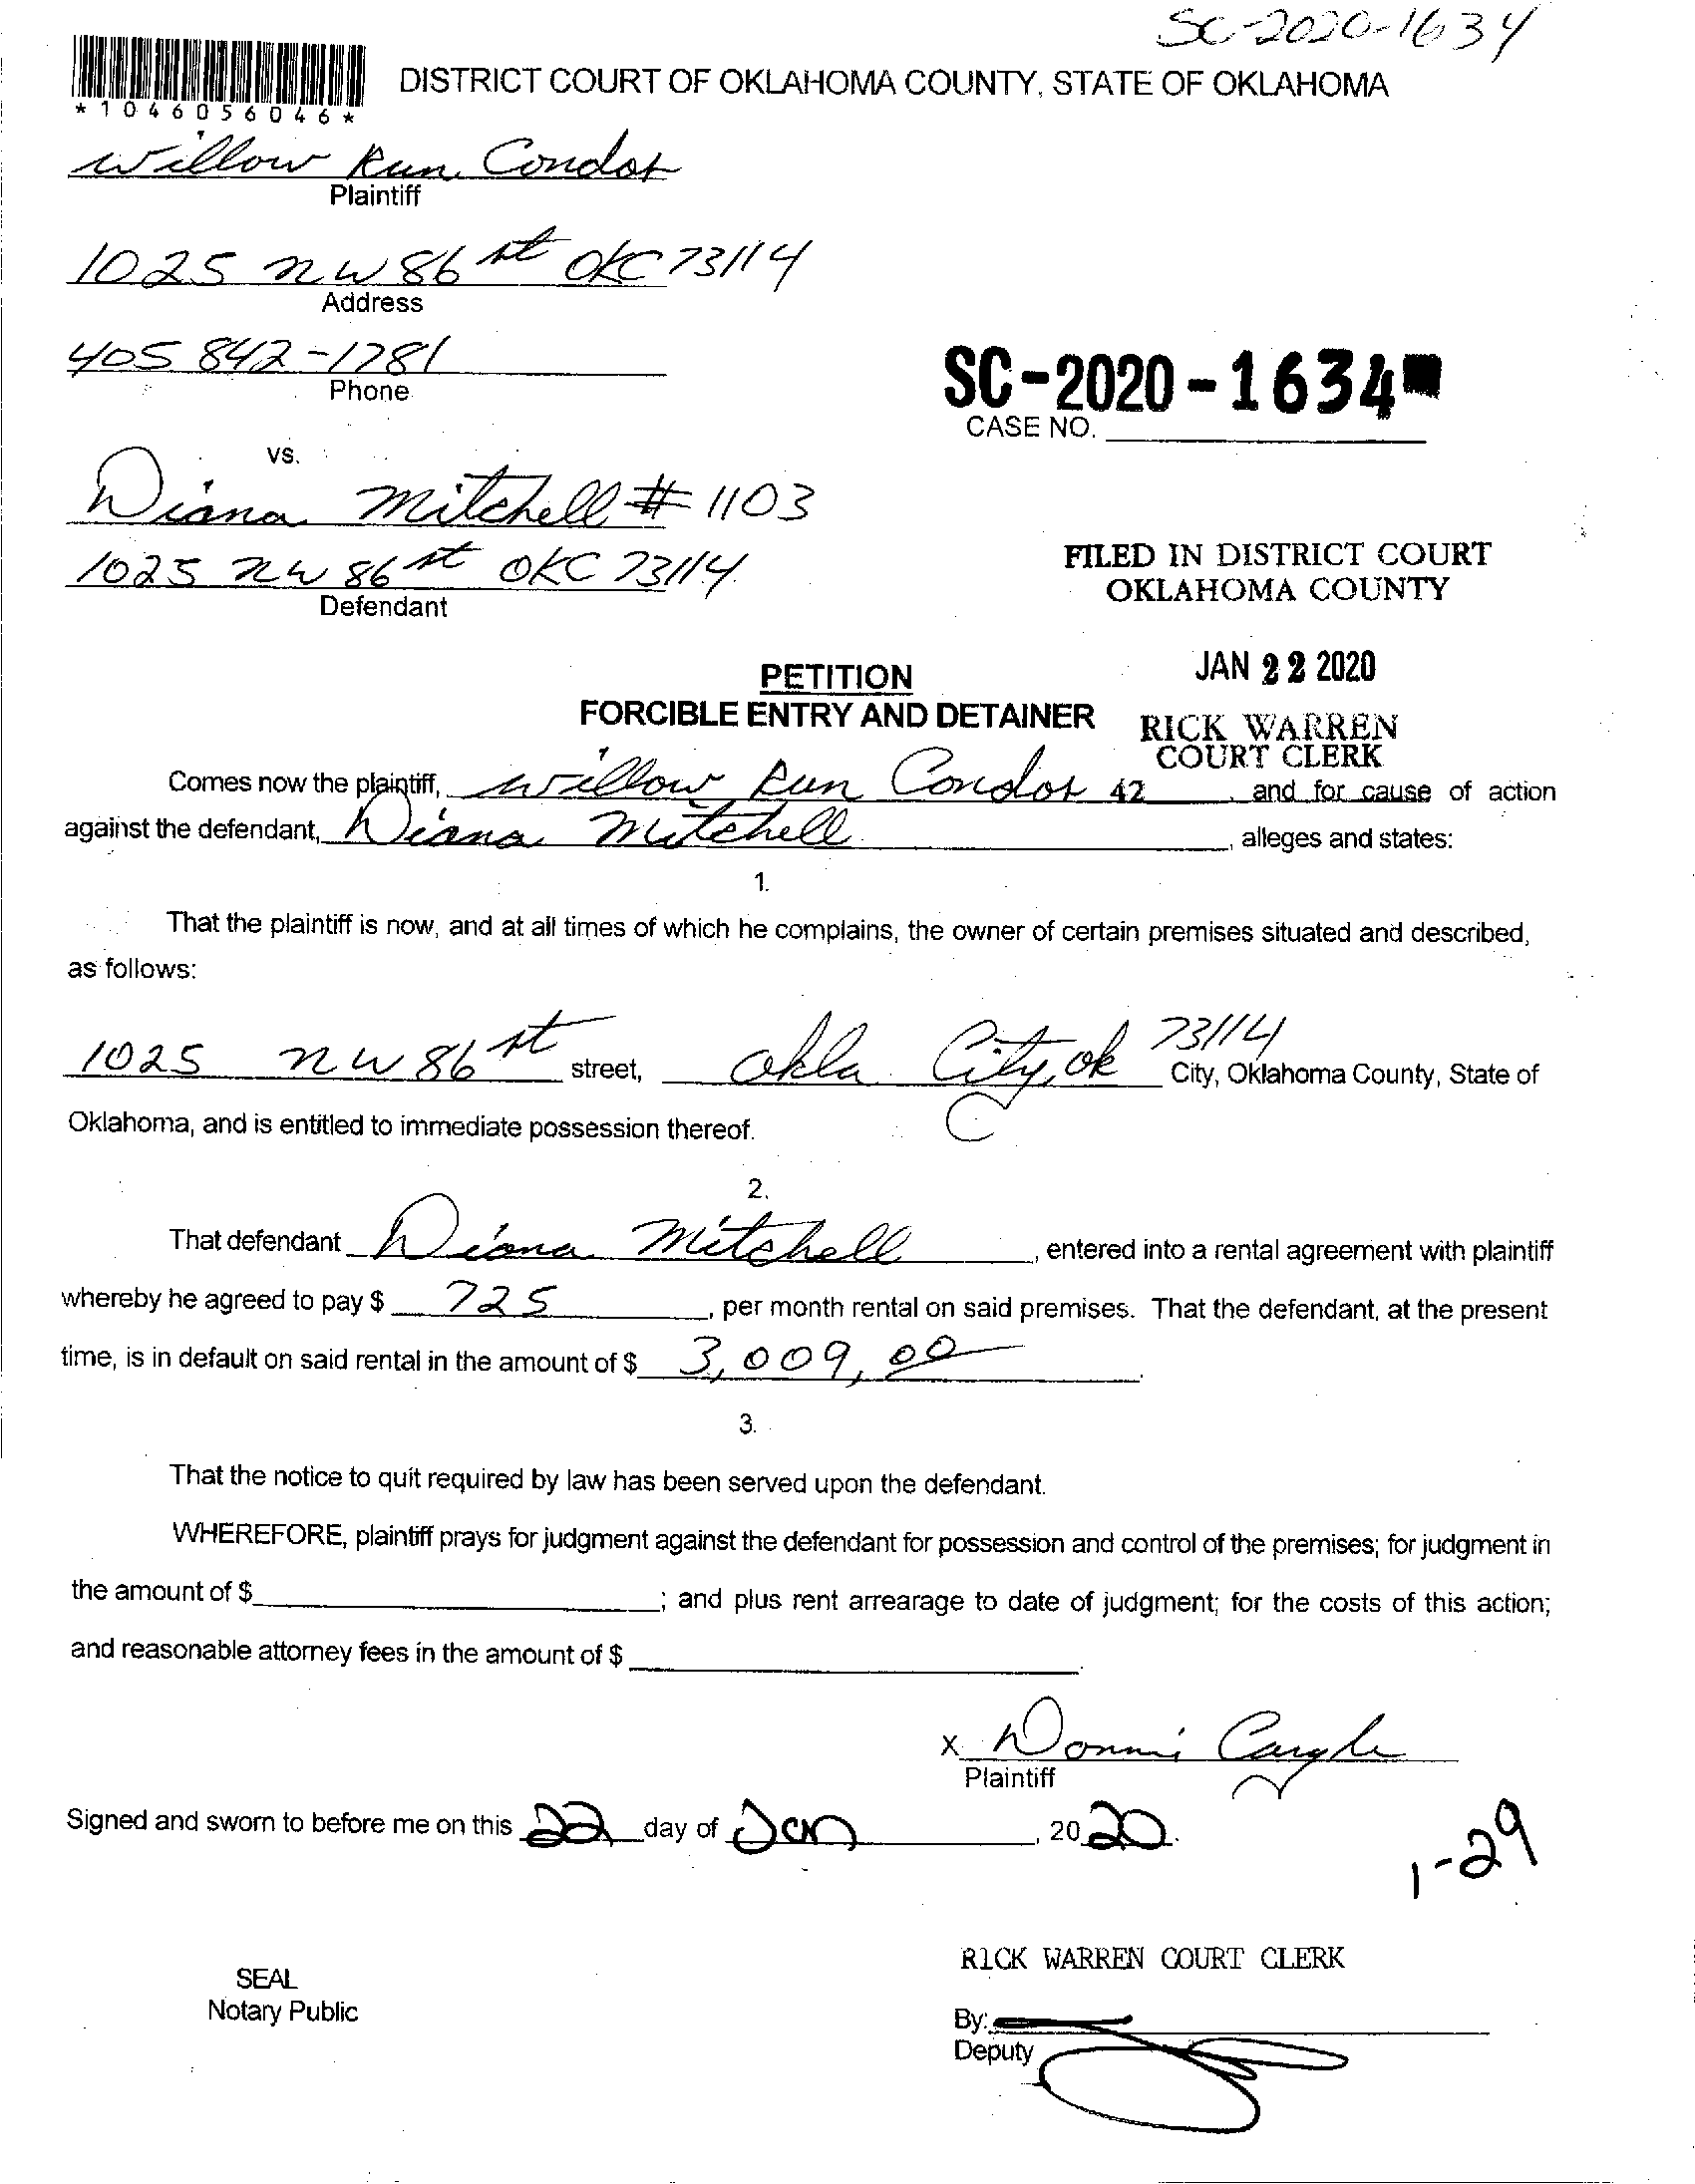 SC-2020-1634
DISTRICT COURT OF OKLAHOMA COUNTY, STATE OF OKLAHOMA
*1046056046*
Willow Run Condos
Plaintiff
1025 NW 86 st OKC 73114
Address
405 842-1781
Phone
SC-2020-1634
CASE NO.
vs.
Diana Mitchell # 1103
1025 NW 86 st OKC 73114
Defendant
FILED IN DISTRICT COURT
OKLAHOMA COUNTY
JAN 22 2020
RICK WARREN
COURT CLERK
PETITION
FORCIBLE ENTRY AND DETAINER
Comes now the plaintiff, Willow Run Condos 42, and for cause of action
against the defendant, Diana Mitchell, alleges and states:
1.
That the plaintiff is now, and at all times of which he complains, the owner of certain premises situated and described,
as follows:
1025 NW 86 st street, Okla City, ok 73114 City, Oklahoma County, State of
Oklahoma, and is entitled to immediate possession thereof.
2.
That defendant Diana Mitchell, entered into a rental agreement with plaintiff
whereby he agreed to pay $ 725, per month rental on said premises. That the defendant, at the present
time, is in default on said rental in the amount of $ 3,009,00.
3.
That the notice to quit required by law has been served upon the defendant.
WHEREFORE, plaintiff prays for judgment against the defendant for possession and control of the premises; for judgment in
the amount of $ ; and plus rent arrearage to date of judgment; for the costs of this action;
and reasonable attorney fees in the amount of $
X Donni Cargle
Plaintiff
Signed and sworn to before me on this 22 day of Jan, 2020.
1-29
SEAL
Notary Public
RICK WARREN COURT CLERK
By:
Deputy